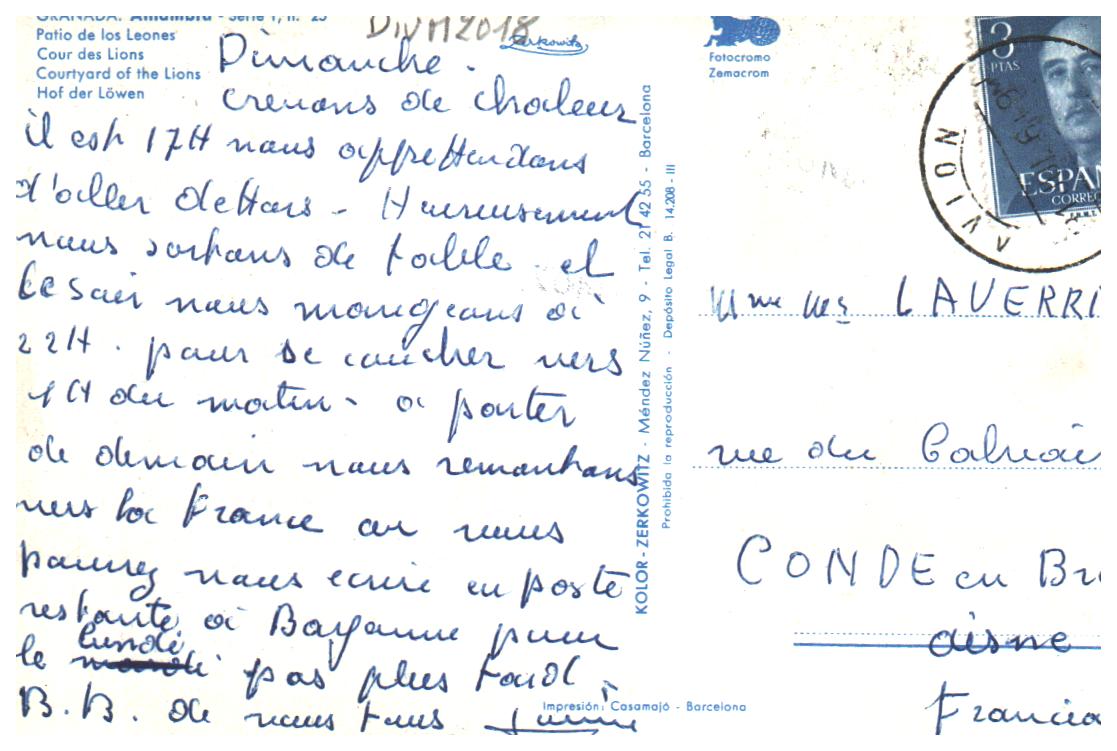 GRANADA. Alhambra - Serie 1, n.° 25
Patio de los Leones
Cour des Lions
Courtyard of the Lions
Hof der Löwen
DIVM2018
Zerkowitz
Dimanche.
crevons de chaleur
il est 17H nous apprettendons
d'aller dehors - Heureusement
nous sortons de table et
le soir nous mangeons à
22H. pour se coucher vers
1H du matin - a parter
de demain nous remontons
vers la France ou vous
pourrez nous ecrire en poste
restante à Bayonne pour
le lundi pas plus tard.
B.B. de nous tous
KOLOR-ZERKOWITZ - Méndez Núñez, 9 - Tel. 21 42 55 - Barcelona
Prohibida la reproducción - Depósito Legal B. 14.208-III
Impresión: Casamajó - Barcelona
Fotocromo
Zemacrom
3
PTAS
ESPAÑ
CORREO
AVION
Mme LAVERRI
rue du Calvair
CONDE en Br
aisne
Francia